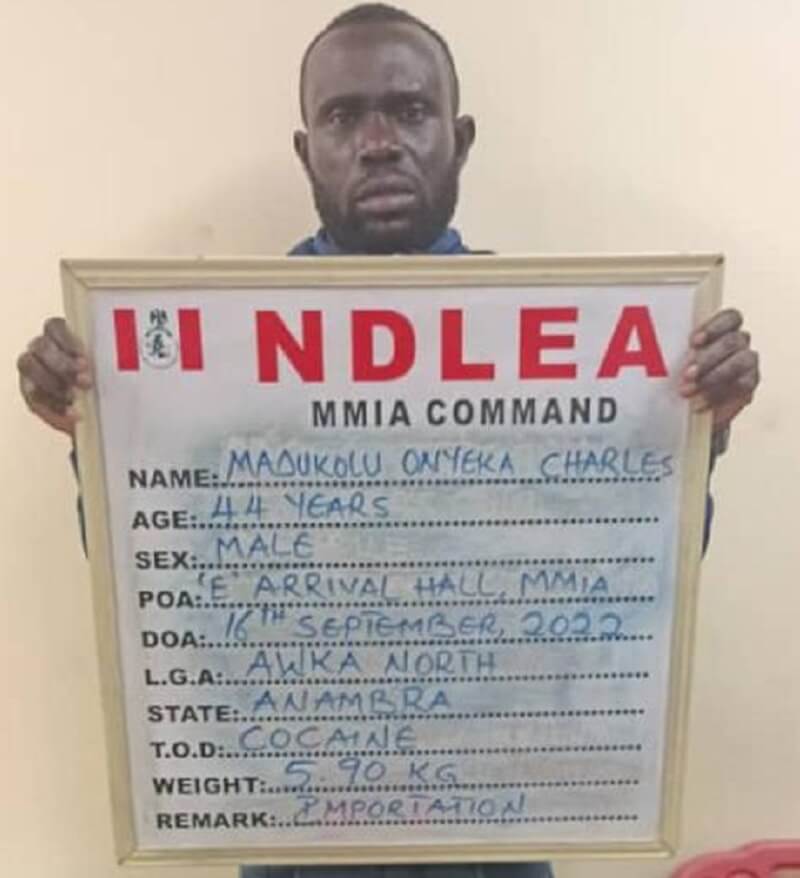 NDLEA
MMIA COMMAND
NAME: MADUKOLU ONYEKA CHARLES
AGE: 44 YEARS
SEX: MALE
POA: 'E' ARRIVAL HALL, MMIA
DOA: 16TH SEPTEMBER, 2022
L.G.A: AWKA NORTH
STATE: ANAMBRA
T.O.D: COCAINE
WEIGHT: 5.90 KG
REMARK: IMPORTATION